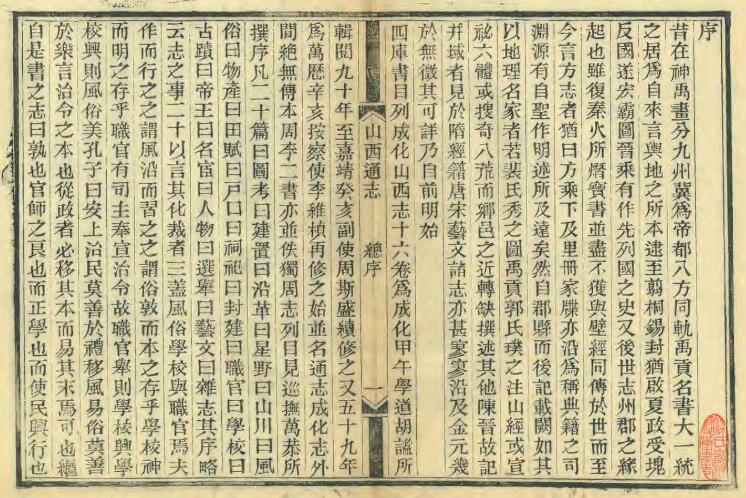 序
昔在神禹畫分九州冀爲帝都八方同軌禹貢名書大一統
之居爲自來言輿地之所本逮至翦桐錫封猶啟夏政受塊
反國遂宏霸圖晉乘有作先列國之史又後世志州郡之緣
起也雖復秦火所燼寶書並盡不獲與壁經同傳於世而至
今言方志者猶曰方乘下及里冊家牒亦沿爲稱典籍之司
淵源有自聖作明述所及遠矣然自郡縣而後記載闕如其
以地理名家者若裴氏秀之圖禹貢郭氏璞之注山經或宣
祕六體或搜奇八荒而鄉邑之近轉缺撰述其他陳晉故記
并域者見於隋經籍唐宋藝文諸志亦甚寥寥沿及金元幾
於無徵其可詳乃自前明始
四庫書目列成化山西志十六卷爲成化甲午學道胡謐所
山西通志
總序
一
輯閱九十年至嘉靖癸亥副使周斯盛續修之又五十九年
爲萬歷辛亥按察使李維楨再修之始並名通志成化志外
間絶無傳本周李二書亦並佚獨周志列目見巡撫萬恭所
撰序凡二十篇曰圖考曰建置曰沿革曰星野曰山川曰風
俗曰物產曰田賦曰戶口曰祠祀曰封建曰職官曰學校曰
古蹟曰帝王曰名宦曰人物曰選舉曰藝文曰雜志其序略
云志之事二十以言其化裁者三蓋風俗學校與職官焉夫
作而行之之謂風沿而習之之謂俗敦而本之存乎學校神
而明之存乎職官有司主奉宣治令故職官舉則學校興學
校興則風俗美孔子曰安上治民莫善於禮移風易俗莫善
於樂言治令之本也從政者必移其本而易其末焉可也繼
自是書之志曰孰也官師之良也而正學也而使民興行也